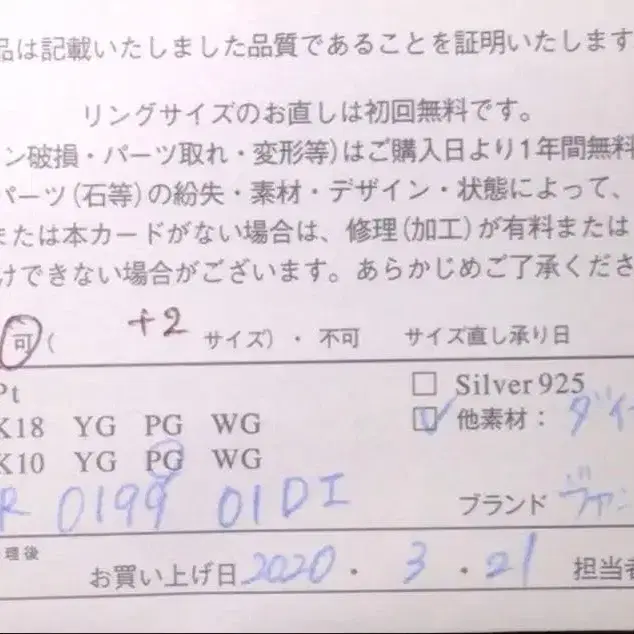 品は記載いたしました品質であることを証明いたします
リングサイズのお直しは初回無料です。
ン破損・パーツ取れ・変形等)はご購入日より1年間無料
パーツ(石等)の紛失・素材・デザイン・状態によって、
または本カードがない場合は、修理(加工)が有料または
けできない場合がございます。あらかじめご了承くださ
可( +2 サイズ)・不可 サイズ直し承り日
Pt □ Silver 925
K18 YG PG WG ☑ 他素材: ダイ
K10 YG PG WG
R 0199 01DI ブランド ヴァン
理後
お買い上げ日 2020・3・21 担当者